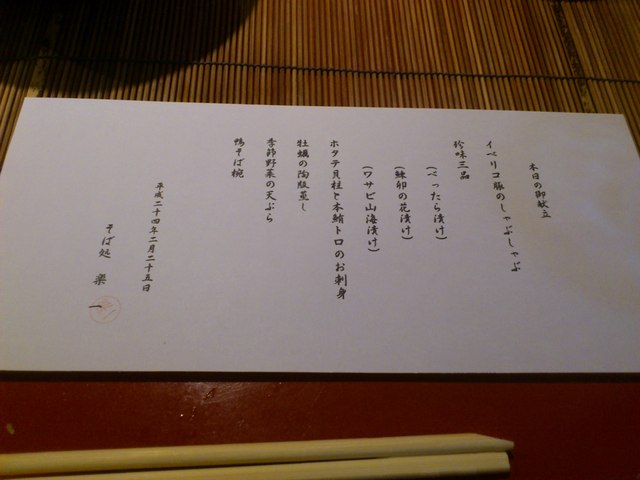 本日の御献立
イベリコ豚のしゃぶしゃぶ
珍味三品
(べったら漬け)
(鰊卯の花漬け)
(ワサビ山海漬け)
ホタテ貝柱と本鮪トロのお刺身
牡蠣の陶板蒸し
季節野菜の天ぷら
鴨そば椀
平成二十四年二月二十五日
そば処 楽一